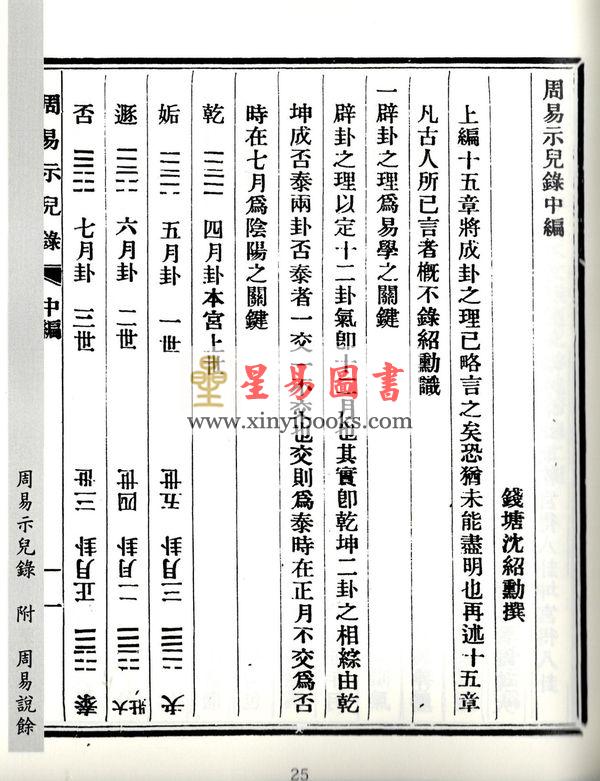 周易示兒錄中編
錢塘沈紹勳撰
上編十五章將成卦之理已略言之矣恐猶未能盡明也再述十五章
凡古人所已言者概不錄紹勳識
一辟卦之理爲易學之關鍵
辟卦之理以定十二卦氣卽十二月也其實卽乾坤二卦之相綜由乾
坤成否泰兩卦否泰者一交一不交也交則爲泰時在正月不交爲否
時在七月爲陰陽之關鍵
乾 四月卦本宮上世
姤 五月卦 一世
夬 三月卦 五世
遯 六月卦 二世
大壯 二月卦 四世
否 七月卦 三世
泰 正月卦 三世
周易示兒錄 中編 一一
周易示兒錄 附 周易說餘
星易圖書
www.xinyibooks.com
25